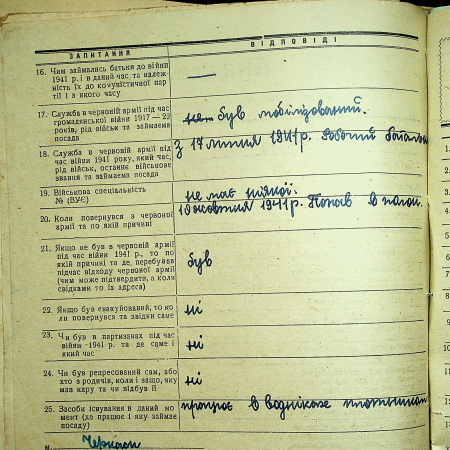 ЗАПИТАННЯ ВІДПОВІДІ
16. Чим займались батьки до війни
1941 р. і в даний час та належ-
ність їх до комуністичної пар-
тії і з якого часу —
17. Служба в червоній армії під час
громадянської війни 1917—22
років, рід військ та займаема
посада
був мобілізований.
18. Служба в червоній армії під
час війни 1941 року, який час,
рід військ, останнє військове
звання та займаема посада
З 17 липня 1941 р. Робочий батальон
19. Військова спеціальність
№ (ВУЄ)
не має ніякої.
20. Коли повернувся з червоної
армії та по якій причині
10 жовтня 1941 р. Попав в полон.
21. Якщо не був в червоній армії
під час війни 1941 р., то по
якій причині та де перебував
підчас відходу червоної армії
(чим може підтвердити, а коли
свідками то їх адреса)
був
22. Якщо був евакуйований, то ко-
ли повернувся та звідки саме
ні
23. Чи був в партизанах під час
війни 1941 р. та де саме і
який час
ні
24. Чи був репресований сам, або
хто з родичів, коли і защо, яку
мав кару та чи відбув її
ні
25. Засоби існування в даний мо-
мент (де працює і яку займає
посаду)
працює в